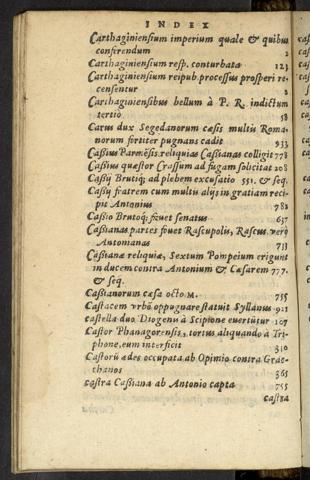 INDEX
Carthaginiensium imperium quale & quibus
conferendum 2
Carthaginiensium resp. conturbata 123
Carthaginiensium reipub. processus prosperi re-
censentur 2
Carthaginensibus bellum à P. R. indictum
tertiò 58
Carus dux Segedanorum cæsis multis Roma
norum fortiter pugnans cadit 933
Caßius Parmẽsis reliquias Caßianas colligit 778
Caßius quæstor Crassum ad fugam solicitat 208
Caßij Brutiq; ad plebem excusatio 551. & seq.
Caßij fratrem cum multis alijs in gratiam reci-
pit Antonius 782
Caßio Brutoq; fauet senatus 637
Caßianas partes fouet Rascupolis, Rascus verò
Antonianas 733
Caßianæ reliquiæ, Sextum Pompeium erigunt
in ducem contra Antonium & Cæsarem 777.
& seq.
Caßianorum cæsa octo M. 755
Castacem vrbẽ oppugnare statuit Syllanus 921
castella duo Diogenis à Scipione euertũtur 107
Castor Phanagorensis, tortus aliquando à Tri-
phone, eum interficit 310
Castorũ ædes occupata ab Opimio contra Grac-
chanos 365
castra Caßiana ab Antonio capta 755
castra